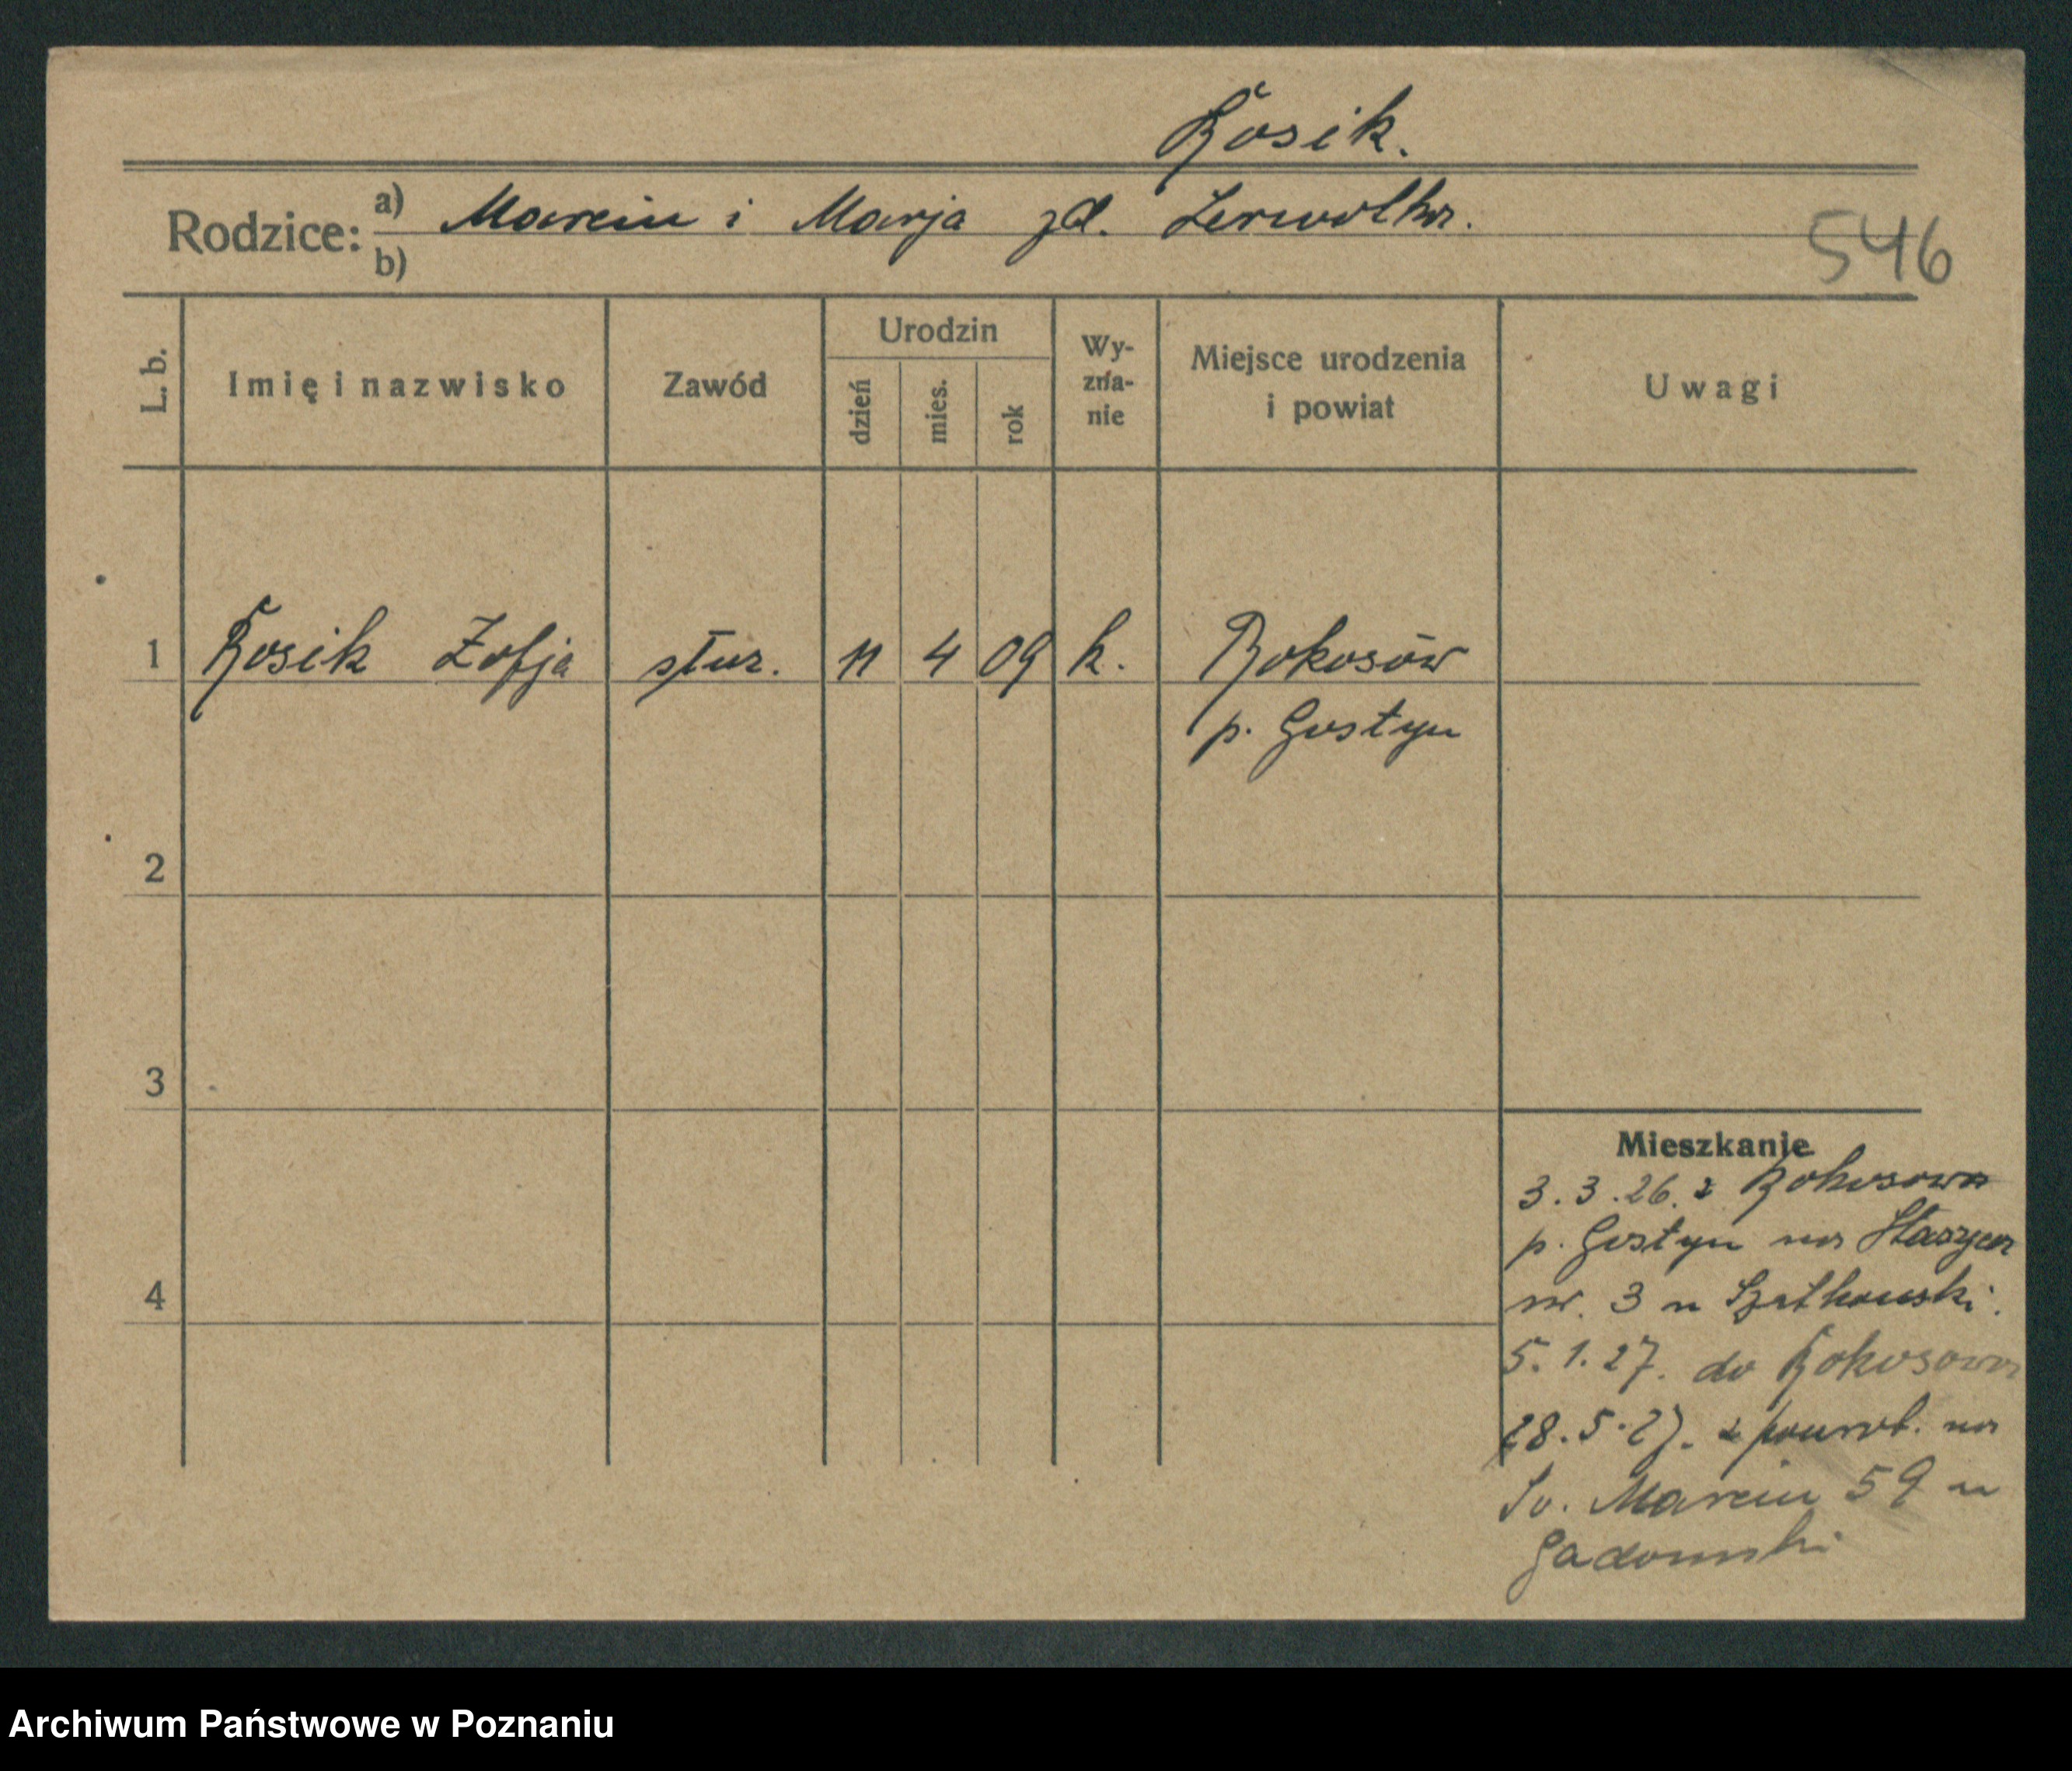 Kosik.
Rodzice: a) Marcin i Marja zd. Zerwolka.
b)
546
L. b.
Imię i nazwisko
Zawód
Urodzin
dzień
mies.
rok
Wy-
zna-
nie
Miejsce urodzenia
i powiat
Uwagi
1 Kosik Zofja służ. 11 4 09 k. Rokosów
p. Gostyn
2
3
4
Mieszkanie
3.3.26. z Rokosowa
p. Gostyn na Staszyca
nr. 3 u Szatkowski.
5.1.27. do Rokosowa
28.5.27. z powrot. na
Św. Marcin 59 u
Gadomski
Archiwum Państwowe w Poznaniu